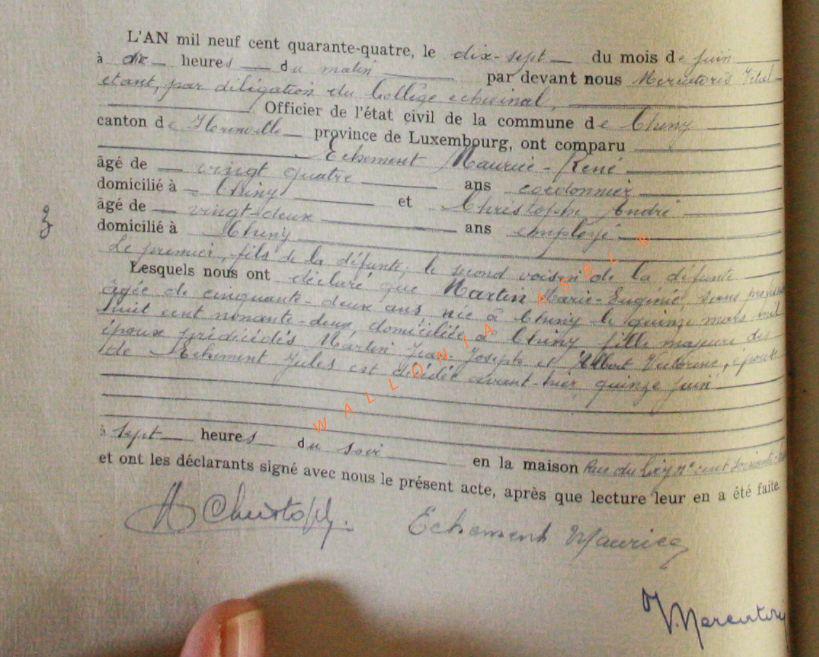 L'AN mil neuf cent quarante-quatre, le dix-sept du mois de juin
à dix heures du matin par devant nous Vital
étant, par délégation du Collège échevinal,
Officier de l'état civil de la commune de Chiny
canton de Florenville province de Luxembourg, ont comparu
Echement Maurice-René
âgé de vingt quatre ans cordonnier
domicilié à Chiny et Christophe André
âgé de vingt-deux ans employé
domicilié à Chiny
Le premier, fils de la défunte, le second voisin de la défunte
Lesquels nous ont déclaré que Martin Marie-Eugénie, sans
âgée de cinquante-deux ans née à Chiny le quinze mars mil
huit cent nonante-deux, domiciliée à Chiny fille majeure des
époux prédécédés Martin Jean-Joseph et Victorine, épouse
de Echement Jules est décédée avant-hier, quinze juin
à sept heures du soir en la maison Rue du n° cent
et ont les déclarants signé avec nous le présent acte, après que lecture leur en a été faite
A Christoph.
Echement Maurice
WALLONIA